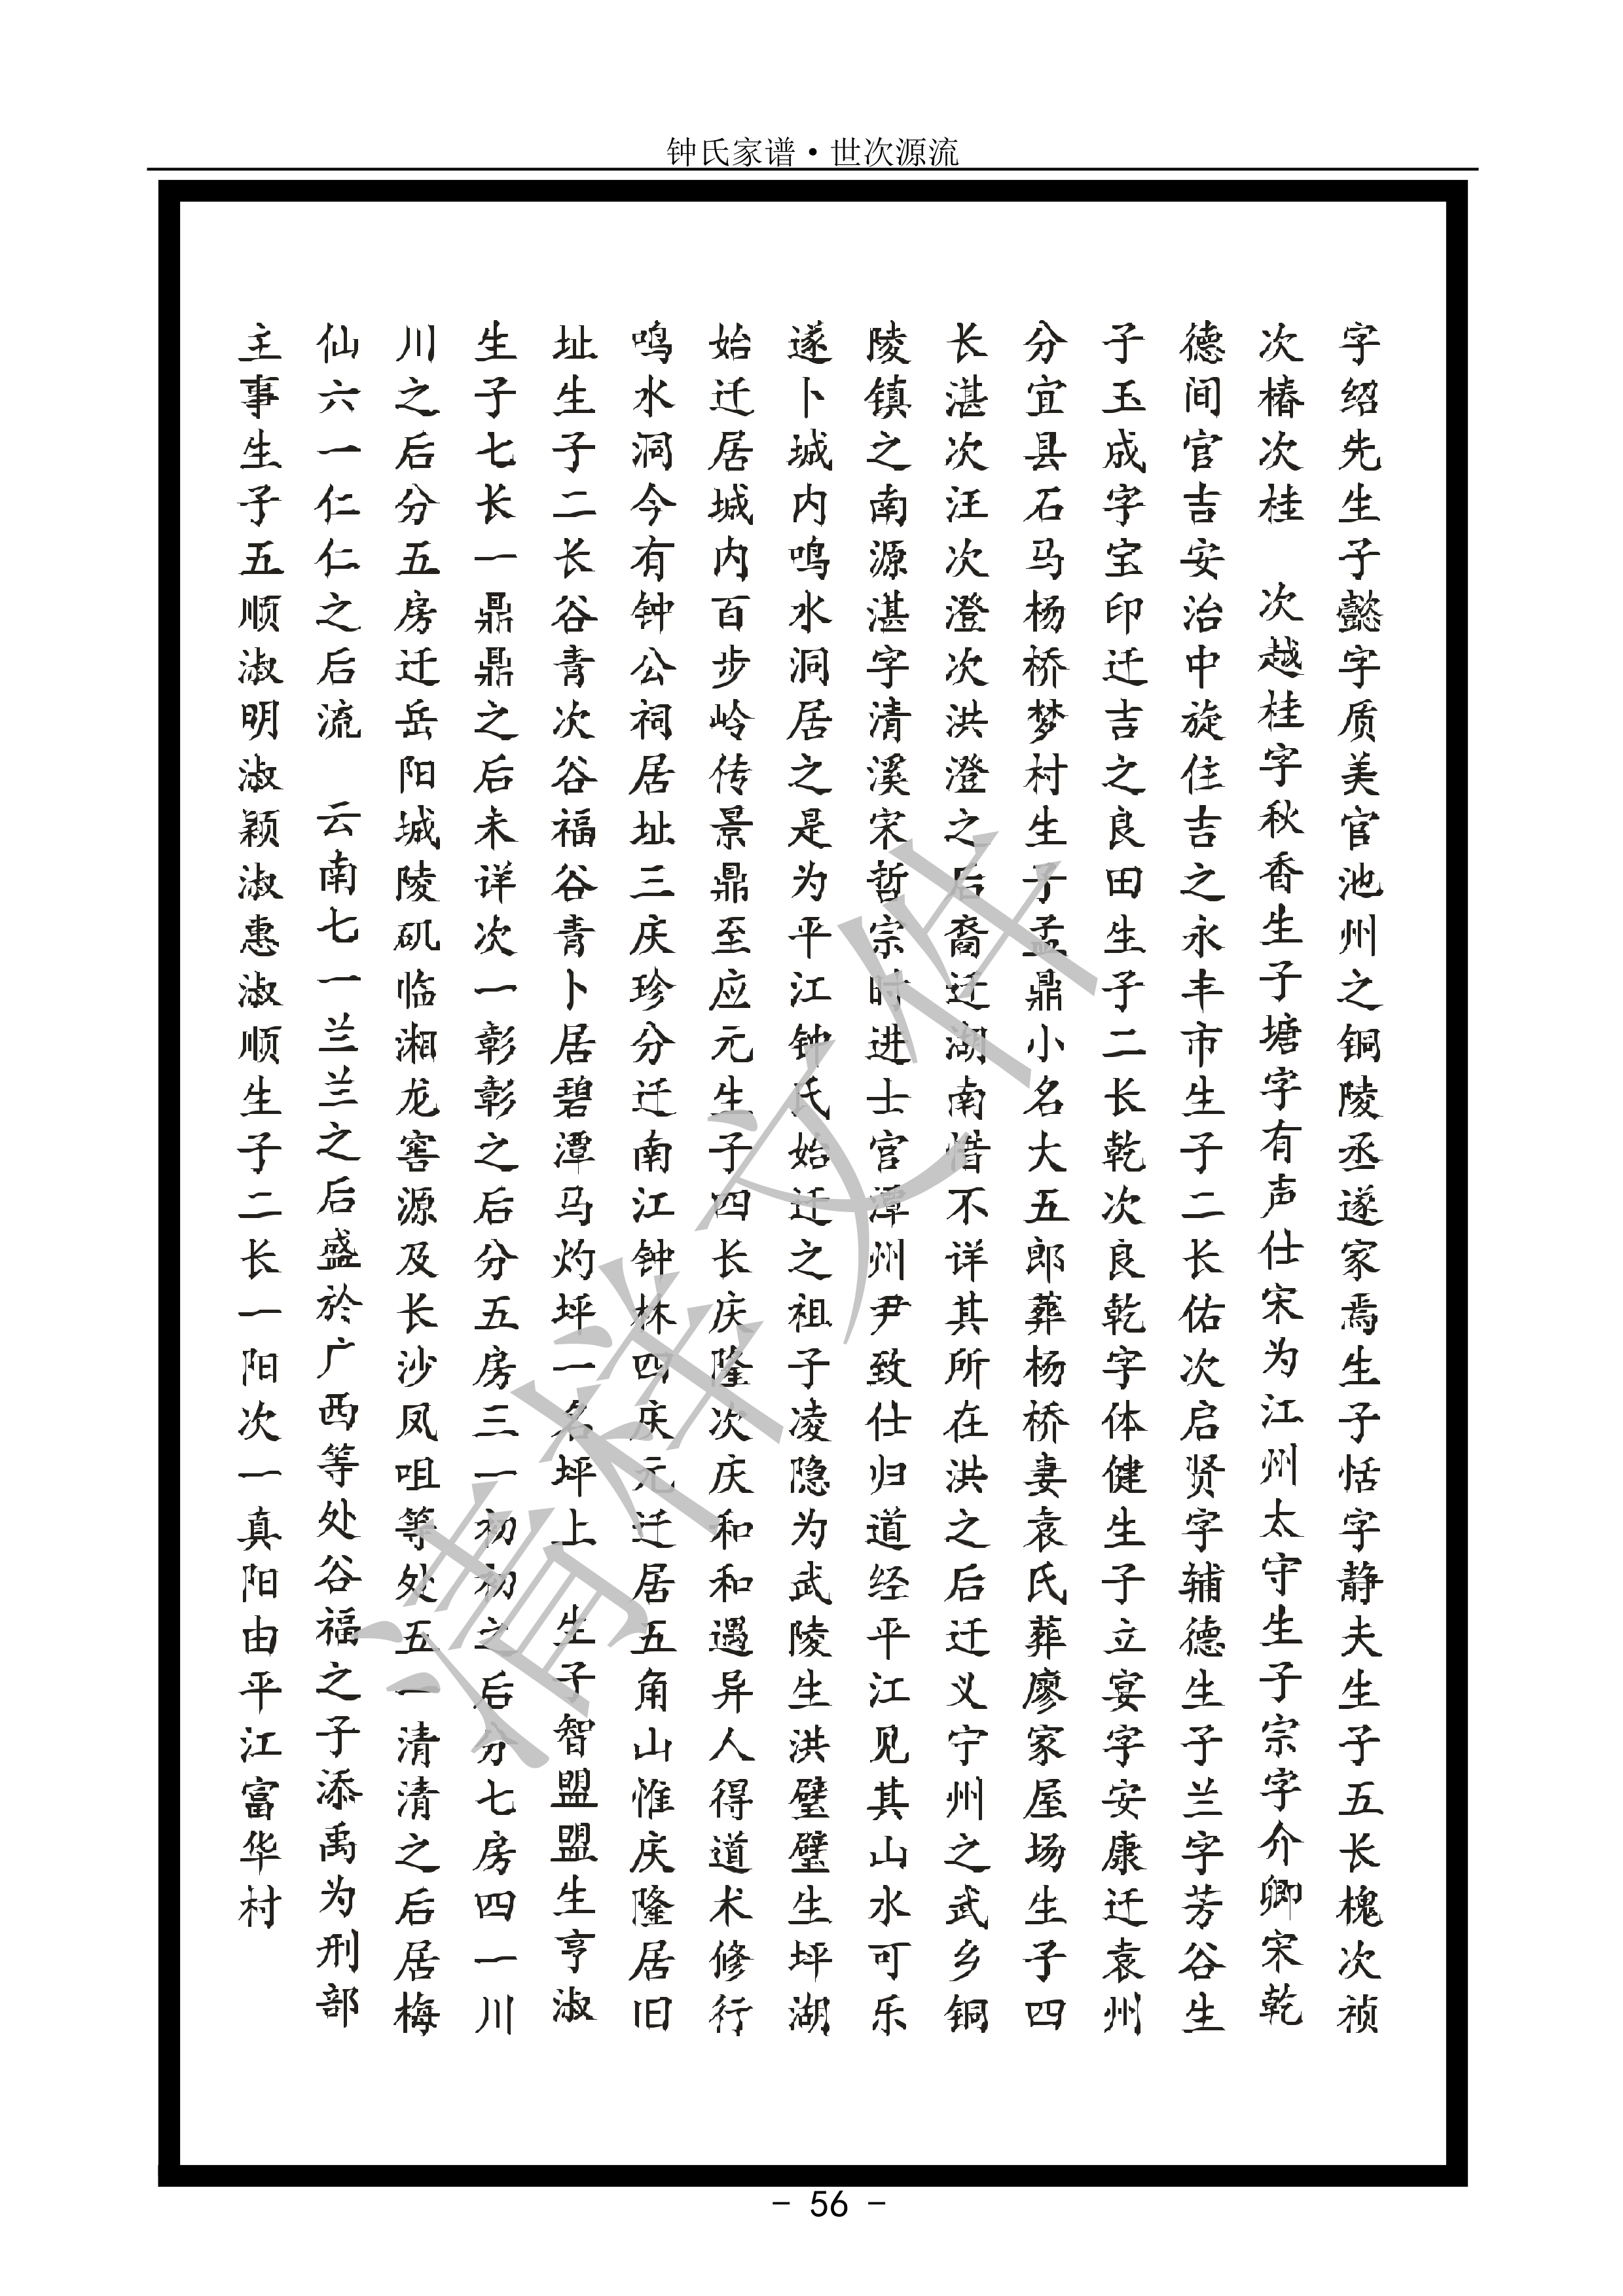 钟氏家谱·世次源流
字绍先生子懿字质美官池州之铜陵丞遂家焉生子恬字静夫生子五长槐次祯
次椿次桂　次越桂字秋香生子塘字有声仕宋为江州太守生子宗字介卿宋乾
德间官吉安治中旋住吉之永丰市生子二长佑次启贤字辅德生子兰字芳谷生
子玉成字宝印迁吉之良田生子二长乾次良乾字体健生子立宴字安康迁袁州
分宜县石马杨桥梦村生子孟鼎小名大五郎葬杨桥妻袁氏葬廖家屋场生子四
长湛次汪次澄次洪澄之后裔迁湖南惜不详其所在洪之后迁义宁州之武乡铜
陵镇之南源湛字清溪宋哲宗时进士官潭州尹致仕归道经平江见其山水可乐
遂卜城内鸣水洞居之是为平江钟氏始迁之祖子凌隐为武陵生洪璧璧生坪湖
始迁居城内百步岭传景鼎至应元生子四长庆隆次庆和和遇异人得道术修行
鸣水洞今有钟公祠居址三庆珍分迁南江钟林四庆元迁居五角山惟庆隆居旧
址生子二长谷青次谷福谷青卜居碧潭马灼坪一名坪上　生子智盟盟生亨淑
生子七长一鼎鼎之后未详次一彰彰之后分五房三一初初之后分七房四一川
川之后分五房迁岳阳城陵矶临湘龙窖源及长沙凤咀等处五一清清之后居梅
仙六一仁仁之后流　云南七一兰兰之后盛於广西等处谷福之子添禹为刑部
主事生子五顺淑明淑颖淑惠淑顺生子二长一阳次一真阳由平江富华村
清样文件
- 56 -